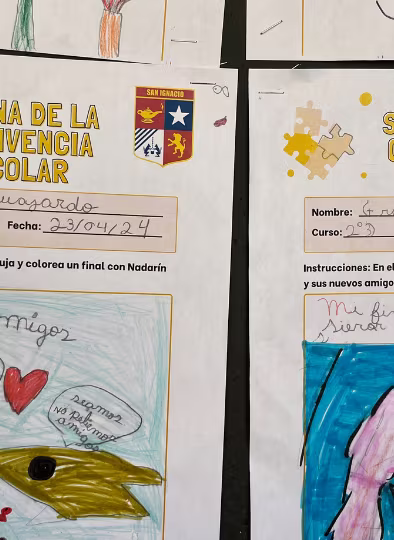 NA DE LA
IVENCIA
COLAR
SAN IGNACIO
uajardo
Fecha: 23/04/24
uja y colorea un final con Nadarín
migos
seamos
no peliemos
amigos
S
Nombre:
Curso: 2°3
Instrucciones: En el
y sus nuevos amigo
Mi fin